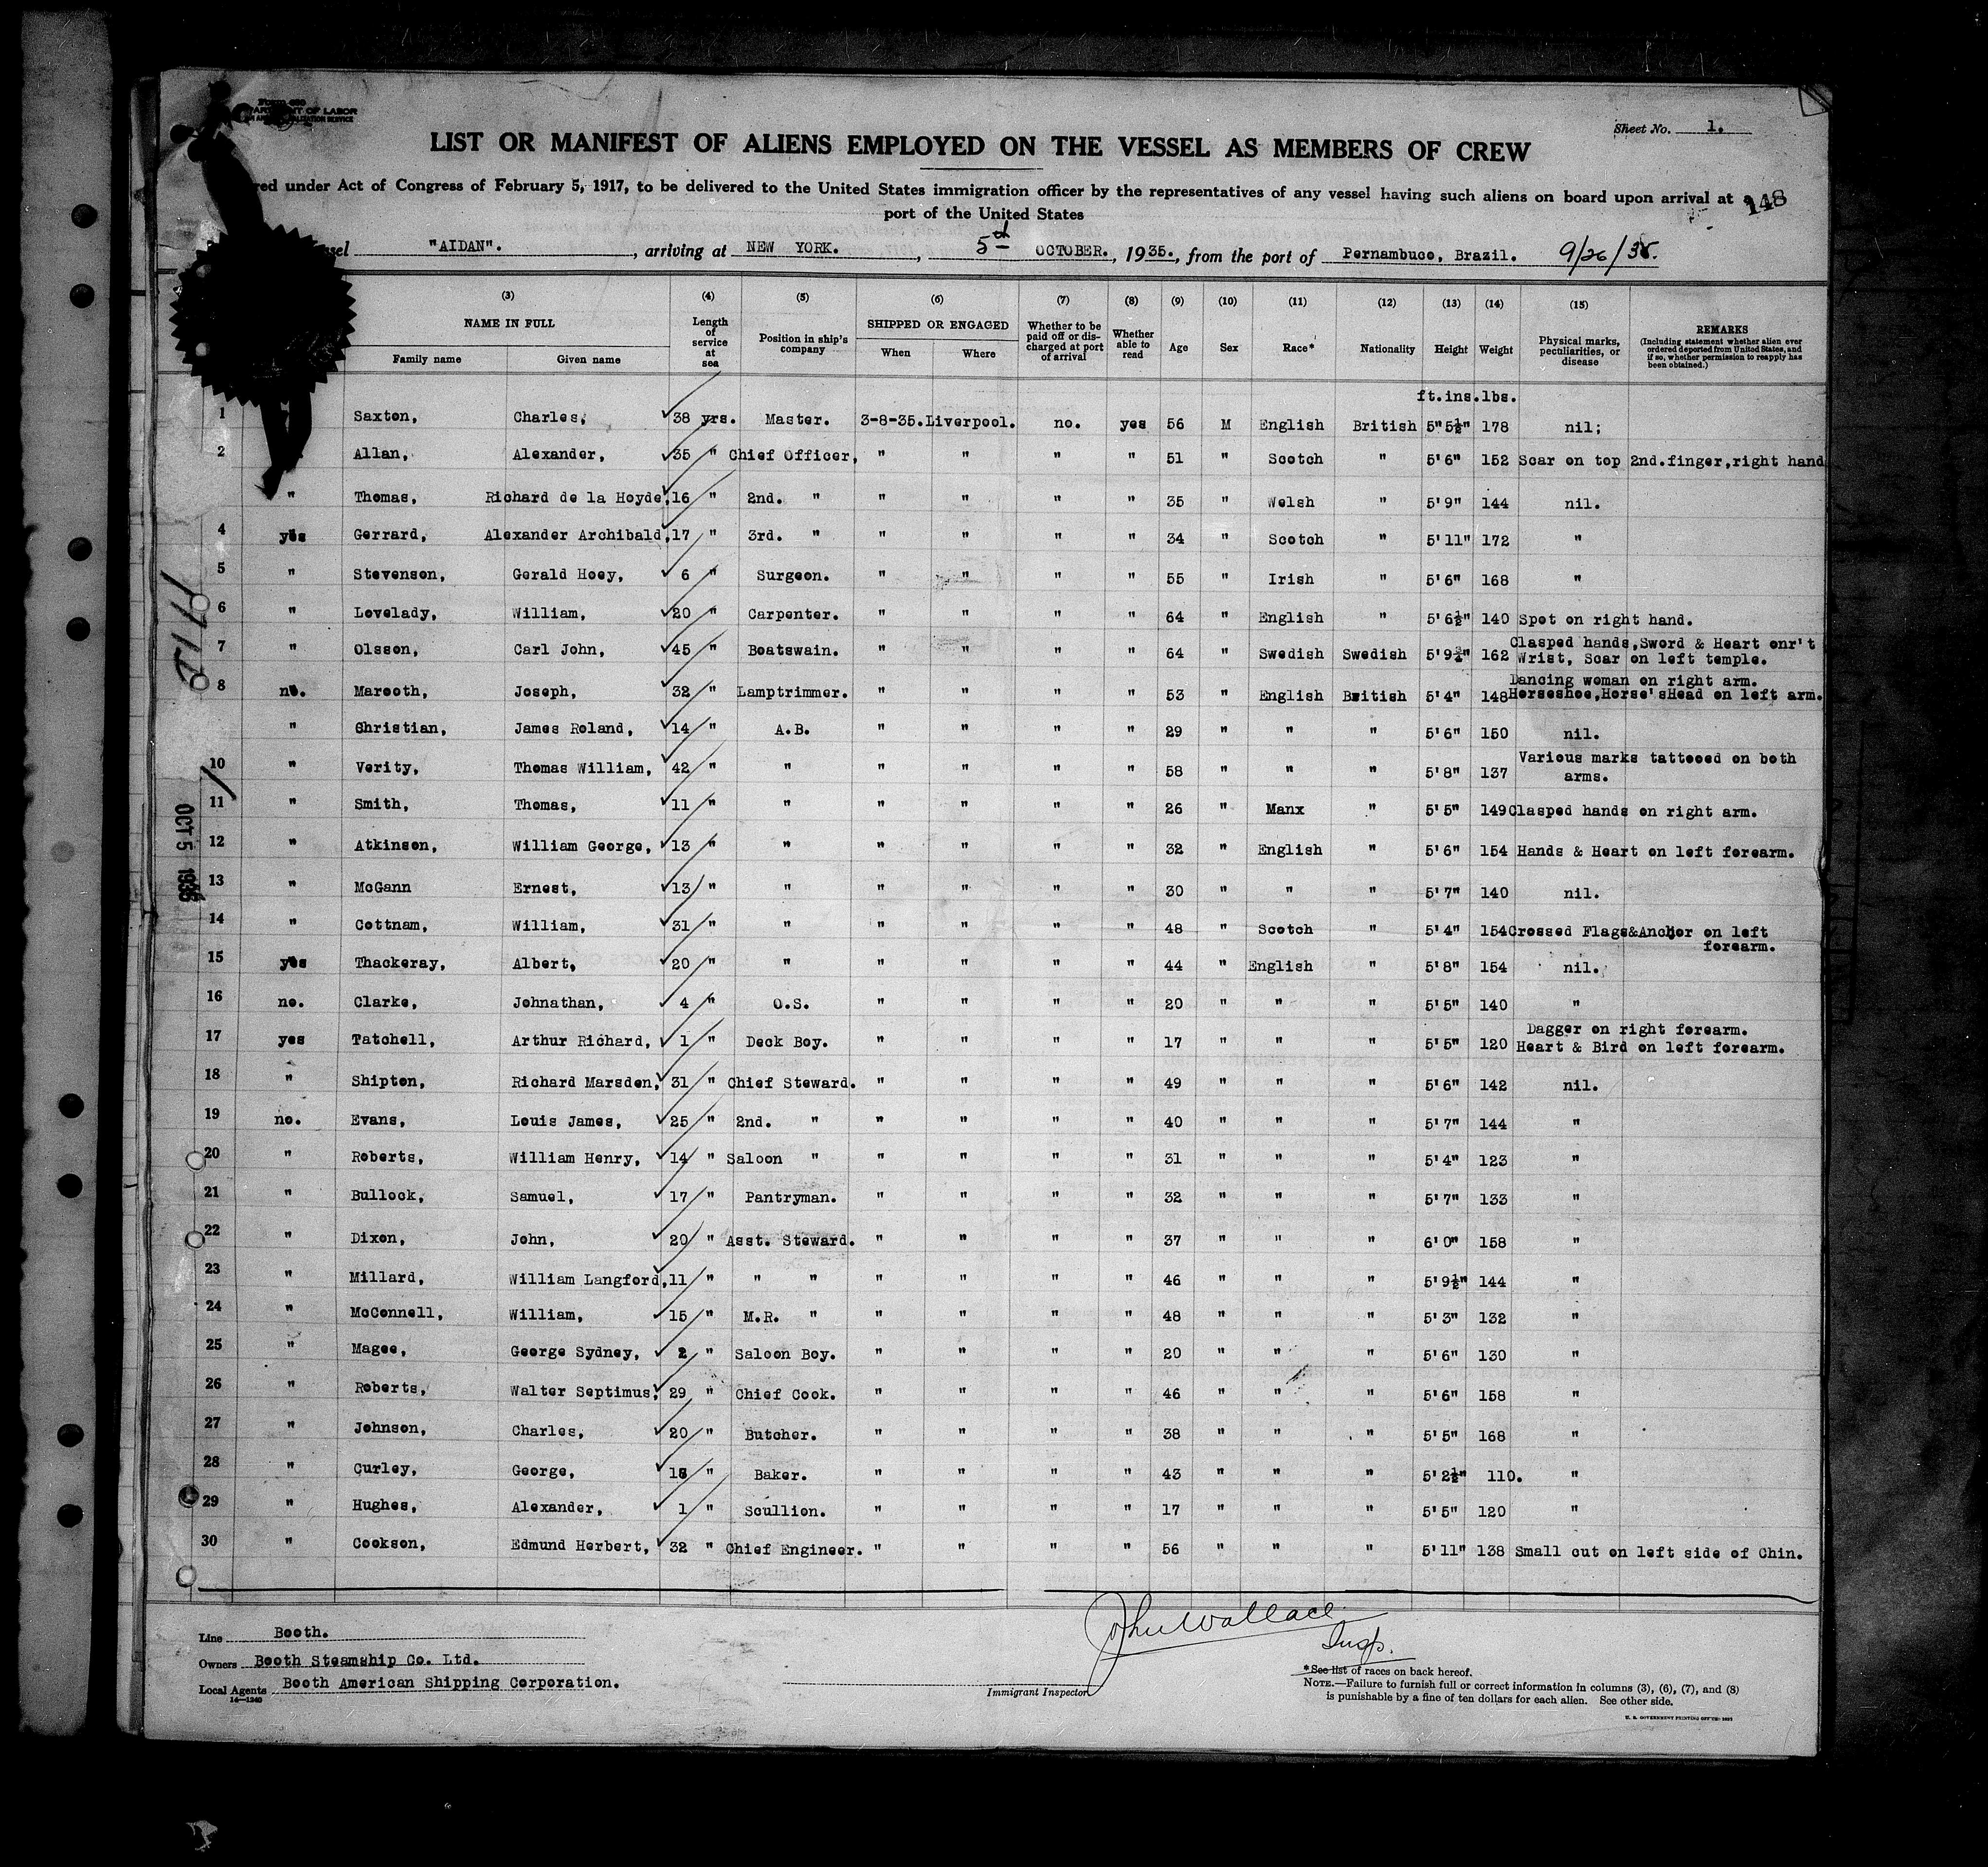 Sheet No. 1.
LIST OR MANIFEST OF ALIENS EMPLOYED ON THE VESSEL AS MEMBERS OF CREW
under Act of Congress of February 5, 1917, to be delivered to the United States immigration officer by the representatives of any vessel having such aliens on board upon arrival at a
port of the United States
148
"AIDAN". , arriving at NEW YORK. , 5th OCTOBER. , 1935. , from the port of Pernambuco, Brazil. 9/26/35.
(3) (4) (5) (6) (7) (8) (9) (10) (11) (12) (13) (14) (15)
NAME IN FULL Family name Given name Length of service at sea Position in ship's company SHIPPED OR ENGAGED When Where Whether to be paid off or discharged at port of arrival Whether able to read Age Sex Race* Nationality Height Weight Physical marks, peculiarities, or disease REMARKS (Including statement whether alien ever ordered deported from United States, and if so, whether permission to reapply has been obtained.)
ft.ins. lbs.
1 Saxton, Charles, 38 yrs. Master. 3-8-35. Liverpool. no. yes 56 M English British 5" 5½" 178 nil;
2 Allan, Alexander, 35 " Chief Officer, " " " " 51 " Scotch " 5'6" 152 Scar on top 2nd.finger,right hand
" Thomas, Richard de la Hoyde, 16 " 2nd. " " " " " 35 " Welsh " 5'9" 144 nil.
4 yes Gerrard, Alexander Archibald, 17 " 3rd. " " " " " 34 " Scotch " 5'11" 172 "
5 " Stevenson, Gerald Hoey, 6 " Surgeon. " " " " 55 " Irish " 5'6" 168 "
6 " Lovelady, William, 20 " Carpenter. " " " " 64 " English " 5'6½" 140 Spot on right hand.
7 " Olsson, Carl John, 45 " Boatswain. " " " " 64 " Swedish Swedish 5'9¾" 162 Clasped hands,Sword & Heart onr't
Wrist, Scar on left temple.
8 no. Marooth, Joseph, 32 " Lamptrimmer. " " " " 53 " English British 5'4" 148 Dancing woman on right arm.
Horseshoe,Horse'sHead on left arm.
" Christian, James Roland, 14 " A.B. " " " " 29 " " " 5'6" 150 nil.
10 " Verity, Thomas William, 42 " " " " " " 58 " " " 5'8" 137 Various marks tattooed on both
arms.
11 " Smith, Thomas, 11 " " " " " " 26 " Manx " 5'5" 149 Clasped hands on right arm.
12 " Atkinson, William George, 13 " " " " " " 32 " English " 5'6" 154 Hands & Heart on left forearm.
13 " McGann Ernest, 13 " " " " " " 30 " " " 5'7" 140 nil.
14 " Cottnam, William, 31 " " " " " " 48 " Scotch " 5'4" 154 Crossed Flags&Anchor on left
forearm.
15 yes Thackeray, Albert, 20 " " " " " " 44 " English " 5'8" 154 nil.
16 no. Clarke, Johnathan, 4 " O.S. " " " " 20 " " " 5'5" 140 "
17 yes Tatchell, Arthur Richard, 1 " Deck Boy. " " " " 17 " " " 5'5" 120 Dagger on right forearm.
Heart & Bird on left forearm.
18 " Shipton, Richard Marsden, 31 " Chief Steward. " " " " 49 " " " 5'6" 142 nil.
19 no. Evans, Louis James, 25 " 2nd. " " " " " 40 " " " 5'7" 144 "
20 " Roberts, William Henry, 14 " Saloon " " " " " 31 " " " 5'4" 123 "
21 " Bullock, Samuel, 17 " Pantryman. " " " " 32 " " " 5'7" 133 "
22 " Dixon, John, 20 " Asst. Steward. " " " " 37 " " " 6'0" 158 "
23 " Millard, William Langford, 11 " " " " " " " 46 " " " 5'9½" 144 "
24 " McConnell, William, 15 " M.R. " " " " " 48 " " " 5'3" 132 "
25 " Magee, George Sydney, 2 " Saloon Boy. " " " " 20 " " " 5'6" 130 "
26 " Roberts, Walter Septimus, 29 " Chief Cook. " " " " 46 " " " 5'6" 158 "
27 " Johnson, Charles, 20 " Butcher. " " " " 38 " " " 5'5" 168 "
28 " Curley, George, 18 " Baker. " " " " 43 " " " 5'2½" 110. "
29 " Hughes, Alexander, 1 " Scullion. " " " " 17 " " " 5'5" 120 "
30 " Cookson, Edmund Herbert, 32 " Chief Engineer. " " " " 56 " " " 5'11" 138 Small cut on left side of Chin.
OCT 5 1935
Line Booth.
Owners Booth Steamship Co. Ltd.
Local Agents Booth American Shipping Corporation.
14—1240
John Wallace
Insp.
Immigrant Inspector
*See list of races on back hereof.
NOTE.—Failure to furnish full or correct information in columns (3), (6), (7), and (8)
is punishable by a fine of ten dollars for each alien. See other side.